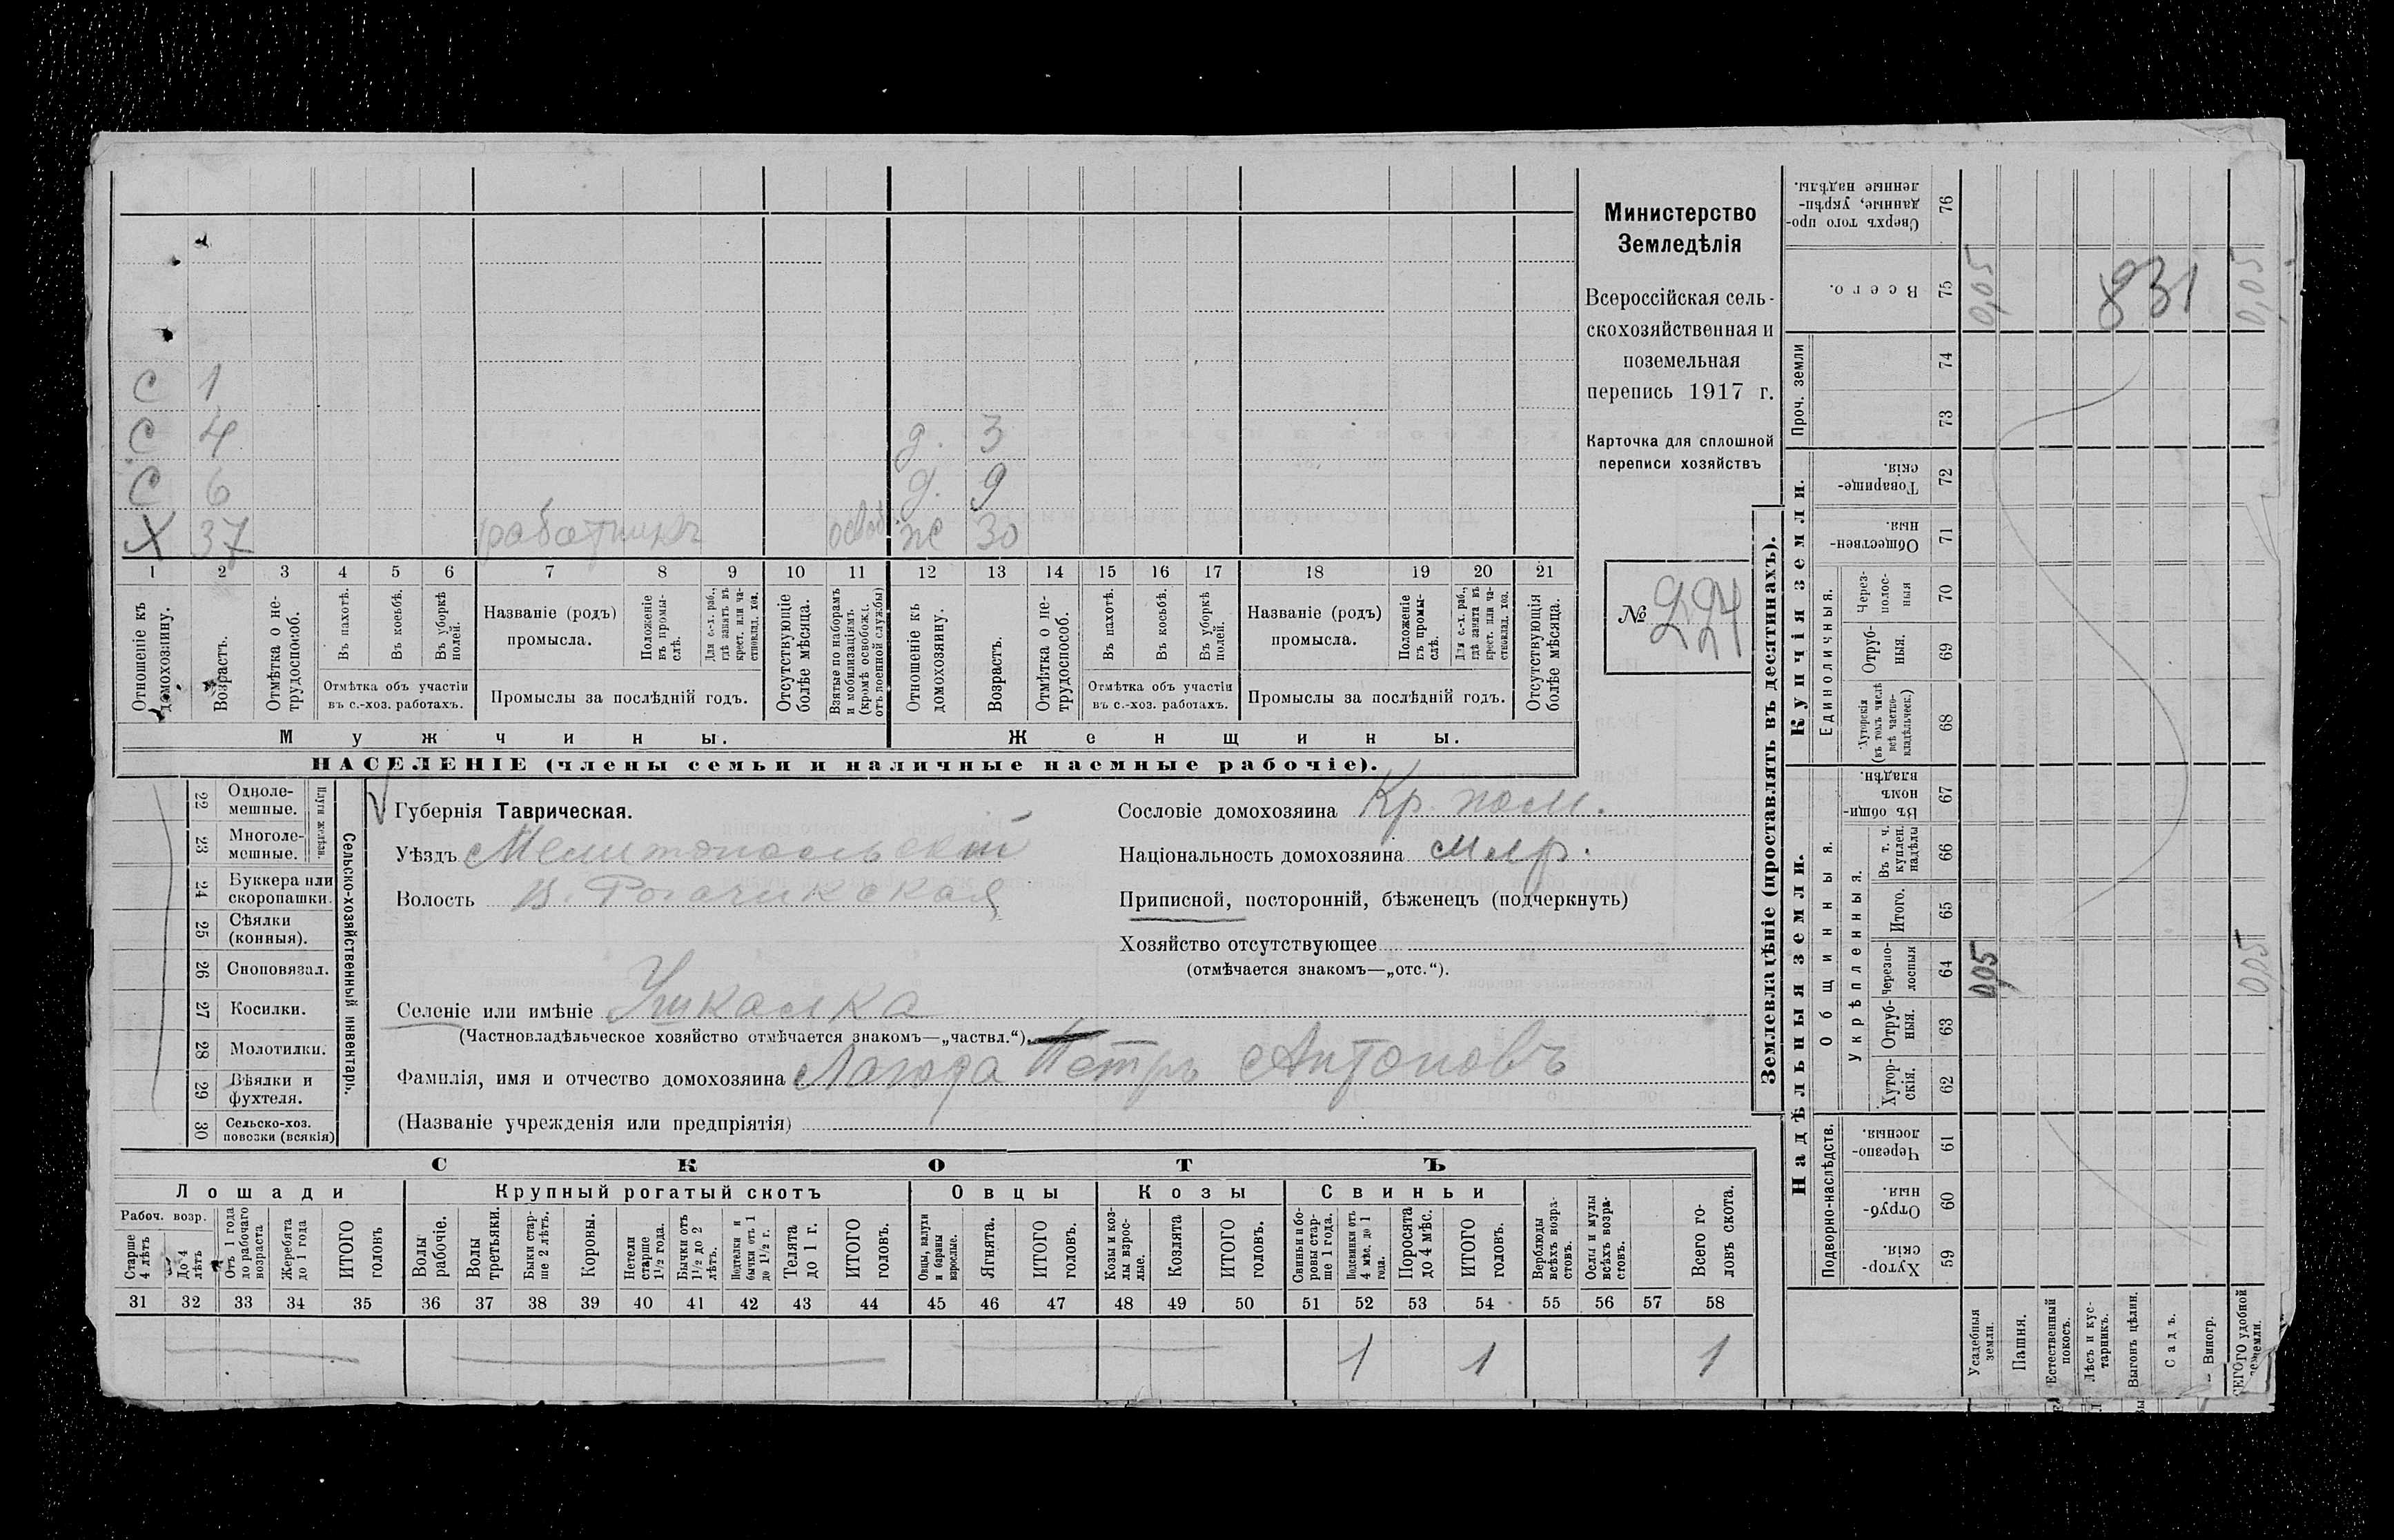 С 1
С 4 д. 3
С 6 д. 9
Х 37 работникъ освоб. же 30
1 2 3 4 5 6 7 8 9 10 11 12 13 14 15 16 17 18 19 20 21
Отношеніе къ домохозяину.
Возрастъ.
Отмѣтка о не-трудоспособ.
Въ пахотѣ.
Въ косьбѣ.
Въ уборкѣ полей.
Отмѣтка объ участіи въ с.-хоз. работахъ.
Названіе (родъ) промысла.
Положеніе въ промы-слѣ.
Для с.-х. раб., гдѣ занятъ въ крест. или ча-стновлад. хоз.
Промыслы за послѣдній годъ.
Отсутствующіе болѣе мѣсяца.
Взятые по наборамъ и мобилизаціямъ (кромѣ освобожд. отъ военной службы)
Отношеніе къ домохозяину.
Возрастъ.
Отмѣтка о не-трудоспособ.
Въ пахотѣ.
Въ косьбѣ.
Въ уборкѣ полей.
Отмѣтка объ участіи въ с.-хоз. работахъ.
Названіе (родъ) промысла.
Положеніе въ промы-слѣ.
Для с.-х. раб., гдѣ занята въ крест. или ча-стновлад. хоз.
Промыслы за послѣдній годъ.
Отсутствующія болѣе мѣсяца.
Мужчины. Женщины.
НАСЕЛЕНІЕ (члены семьи и наличные наемные рабочіе).
Министерство
Земледѣлія
Всероссійская сель-
скохозяйственная и
поземельная
перепись 1917 г.
Карточка для сплошной
переписи хозяйствъ
№ 224
22 Одноле-мешные.
23 Многоле-мешные.
Плуги желѣзн.
24 Буккера или скоропашки.
25 Сѣялки (конныя).
26 Сноповязал.
27 Косилки.
28 Молотилки.
29 Вѣялки и фухтеля.
30 Сельско-хоз. повозки (всякія)
Сельско-хозяйственный инвентарь.
Губернія Таврическая.
Уѣздъ Мелитопольскій
Волость В. Рогачикская
Сословіе домохозяина Кр. пос.
Національность домохозяина млр.
Приписной, посторонній, бѣженецъ (подчеркнуть)
Хозяйство отсутствующее
(отмѣчается знакомъ—„отс.“).
Селеніе или имѣніе Ушкалка
(Частновладѣльческое хозяйство отмѣчается знакомъ—„частвл.“).
Фамилія, имя и отчество домохозяина Лагода Петръ Антоновъ
(Названіе учрежденія или предпріятія)
СКОТЪ
Лошади Крупный рогатый скотъ Овцы Козы Свиньи
Рабоч. возр.
Старше 4 лѣтъ
До 4 лѣтъ
Отъ 1 года до рабочаго возраста
Жеребята до 1 года
ИТОГО головъ
Волы рабочіе.
Волы третьяки.
Быки стар-ше 2 лѣтъ.
Коровы.
Нетели старше 1 1/2 года.
Бычки отъ 1 1/2 до 2 лѣтъ.
Подтелки и бычки отъ 1 до 1 1/2 г.
Телята до 1 г.
ИТОГО головъ.
Овцы, валухи и бараны взрослые.
Ягнята.
ИТОГО головъ.
Козы и коз-лы взрос-лые.
Козлята
ИТОГО головъ.
Свиньи и бо-ровы стар-ше 1 года.
Подсвинки отъ 4 мѣс. до 1 года.
Поросята до 4 мѣс.
ИТОГО головъ.
Верблюды всѣхъ возра-стовъ.
Ослы и мулы всѣхъ возра-стовъ.
Всего го-ловъ скота.
31 32 33 34 35 36 37 38 39 40 41 42 43 44 45 46 47 48 49 50 51 52 53 54 55 56 57 58
1 1 1
Землевладѣніе (проставлять въ десятинахъ).
Надѣльныя земли.
Купчія земли.
Проч. земли
Подворно-наслѣдств.
Общинныя.
Укрѣпленныя.
Единоличныя.
Сверхъ того про-данные, укрѣп-ленные надѣлы. 76
Всего. 75 0,05 831 0,05
74
73
Товарище-скія. 72
Обществен-ныя. 71
Через-полос-ныя 70
Отруб-ныя. 69
Хуторскія (въ томъ числѣ всѣ частно-владѣльческ.) 68
Въ общин-номъ владѣн. 67
Въ т. ч. куплен. надѣлы 66
Итого. 65
Черезпо-лосныя 64 0,05 0,05
Отруб-ныя. 63
Хутор-скія. 62
Черезпо-лосныя. 61
Отруб-ныя. 60
Хутор-скія. 59
Усадебныя земли.
Пашня.
Естественный покосъ.
Лѣсъ и кус-тарникъ.
Выгонъ цѣлин.
Садъ.
Виногр.
ВСЕГО удобной земли.